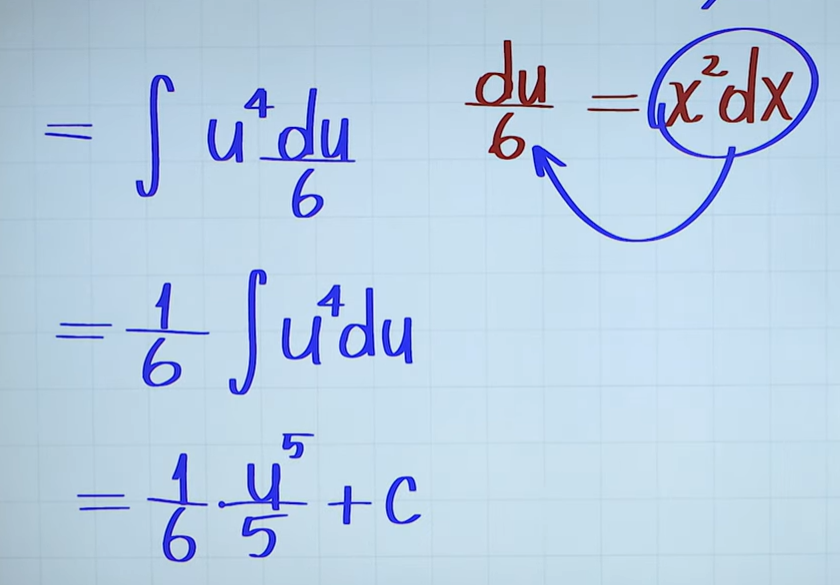 = ∫ u⁴ du/6
du/6 = x²dx
= 1/6 ∫ u⁴du
= 1/6 · u⁵/5 + c